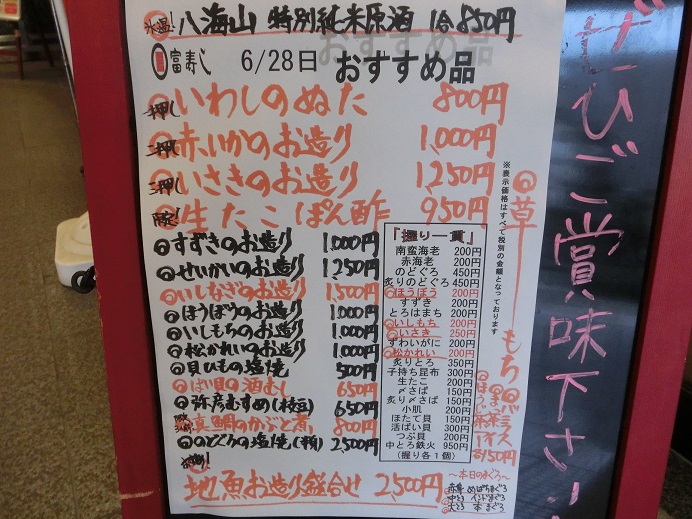 氷温！ 八海山 特別純米原酒 1合850円
富寿し 6/28日 おすすめ品
一押し いわしのぬた 800円
二押し 赤いかのお造り 1,000円
三押し いさきのお造り 1,250円
限定！ 生たこぽん酢 950円
すずきのお造り 1,000円
せいかいのお造り 1,250円
いしなぎのお造り 1,500円
ほうぼうのお造り 1,000円
いしもちのお造り 1,000円
松かれいのお造り 1,000円
貝ひもの塩焼 500円
ばい貝の酒むし 650円
弥彦むすめ(枝豆) 650円
真鯛のかぶと煮 800円
のどぐろの塩焼(半身) 2,500円
地魚お造り盛合せ 2,500円
「握り一貫」
南蛮海老 200円
赤海老 200円
のどぐろ 450円
炙りのどぐろ 450円
ほうぼう 200円
すずき 200円
とろはまち 200円
いしもち 200円
いさき 250円
ずわいがに 200円
松かれい 200円
炙りとろ 350円
子持ち昆布 300円
生たこ 150円
〆さば 150円
炙り〆さば 150円
小肌 200円
ほたて貝 150円
活ばい貝 300円
つぶ貝 200円
中とろ鉄火 950円
(握り各1個)
※表示価格はすべて税別の金額となっております
草もち
バニラアイス
ほうじ茶
各150円
～本日のまぐろ～
赤身 めばちまぐろ
中とろ インドまぐろ
大とろ 本まぐろ
ぜひご賞味下さい